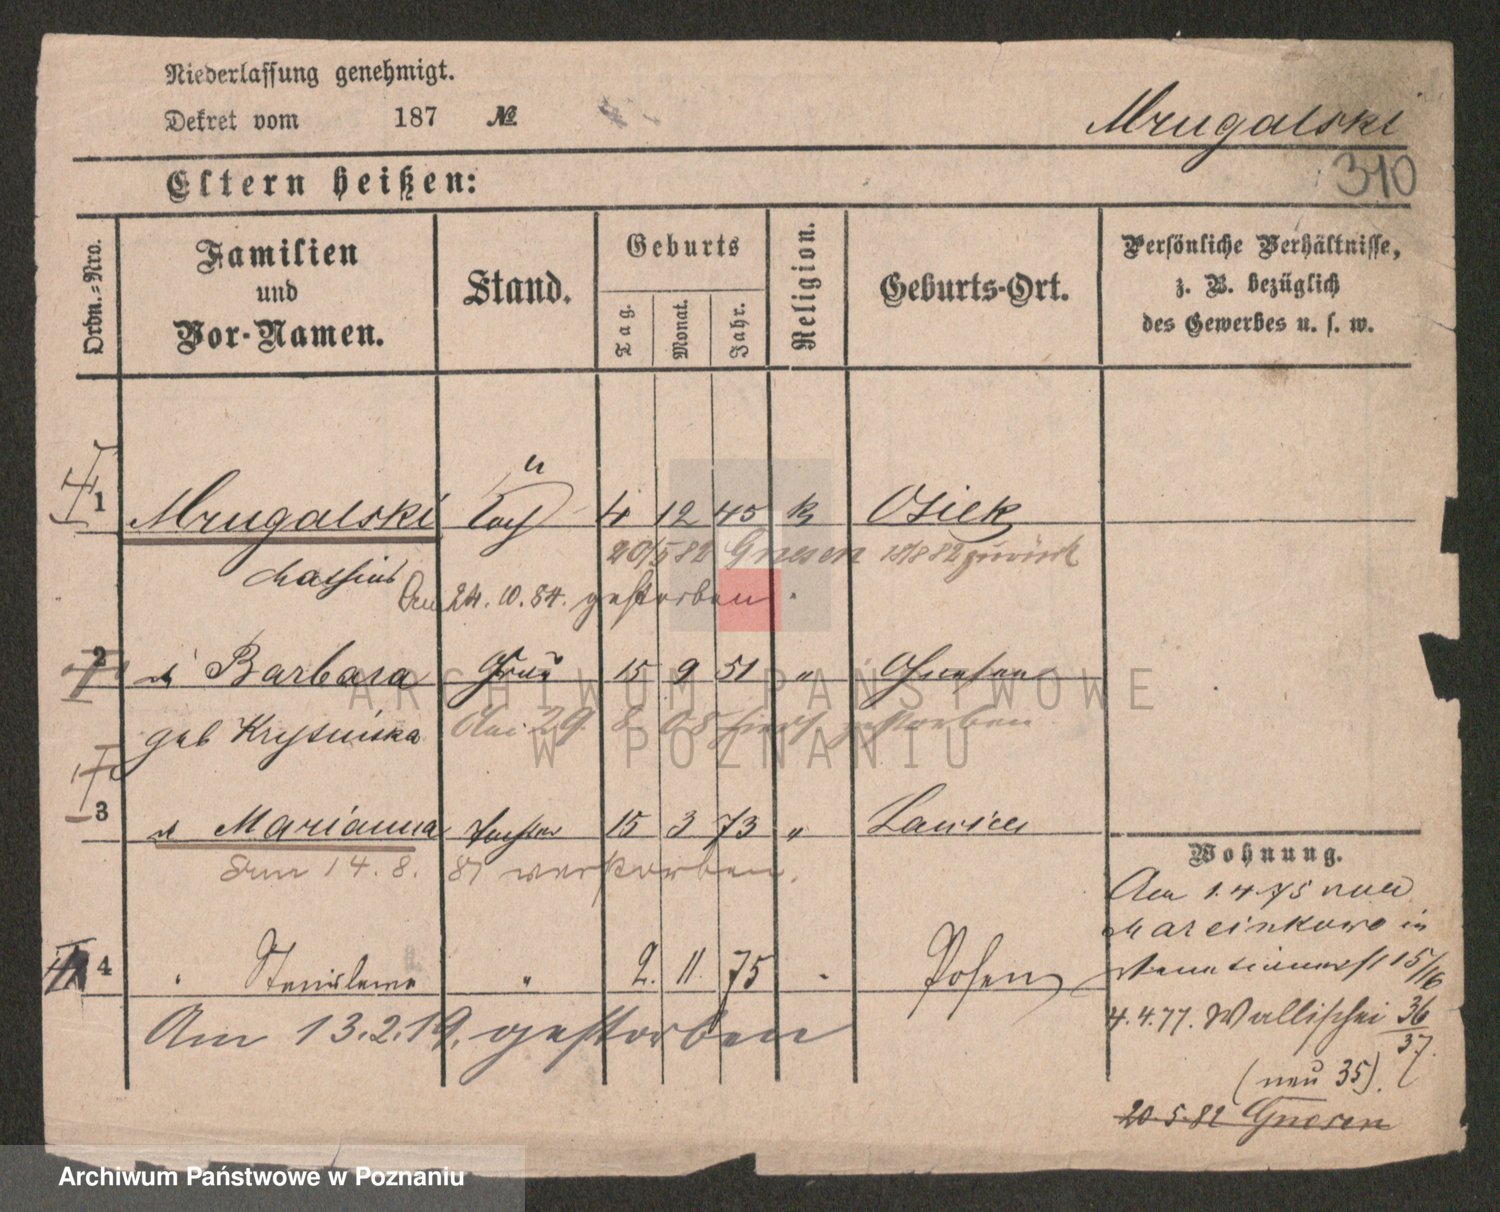 Niederlassung genehmigt.
Dekret vom 187 №
Mrugalski
310
Eltern heißen:
Ordn.-Nro.
Familien
und
Vor-Namen.
Stand.
Geburts
Tag.
Monat.
Jahr.
Religion.
Geburts-Ort.
Persönliche Verhältnisse,
z. B. bezüglich
des Gewerbes u. s. w.
1 Mrugalski 4 12 45 k Osiek
20/5 82 Gnesen 18/8 82 zurück
24. 10. 84. gestorben.
2 Barbara Frau 15 9 51 "
geb Krysinska
29. 8. 08 hier gestorben
3 Marianna Tochter 15 3 73 " Lawica
14. 8. 87 verstorben.
4 " Stanislawa " 2. 11. 75 " Posen
Am 13.2.19. gestorben
Wohnung.
Am 1.4.75 von
Marcinkowo in
15/16
4.4.77. Wallischei 36/37.
(neu 35).
20.5.82 Gnesen
ARCHIWUM PAŃSTWOWE
W POZNANIU
Archiwum Państwowe w Poznaniu